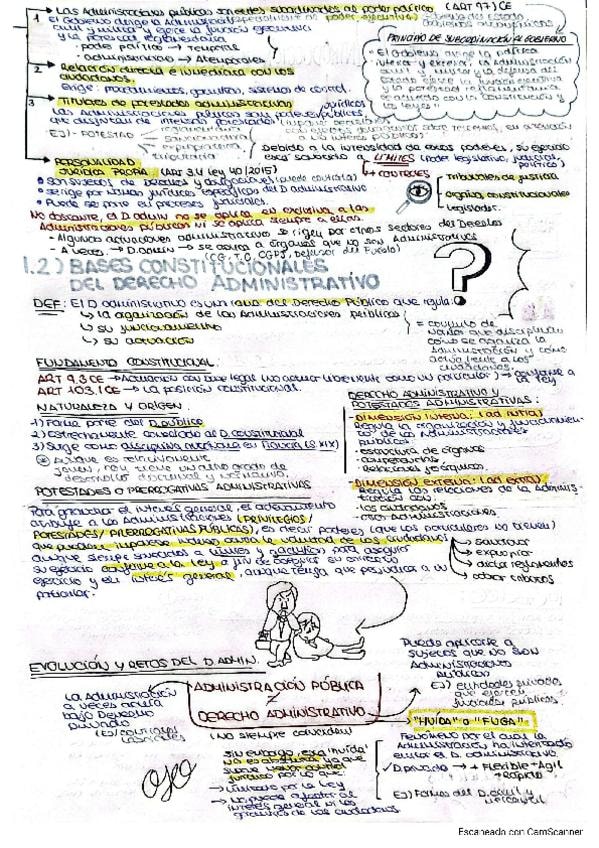 1 Las Administraciones públicas sometes subordinadas al poder político (ART 97) CE
El Gobierno dirige la Administración
civil y militar y ejerce la función ejecutiva
y la potestad reglamentaria
· poder político → Temporal
· administración → Atemporales
PRINCIPIO DE SUBORDINACIÓN AL GOBIERNO
"El Gobierno dirige la política
interior y exterior, la Administración
civil y militar y la defensa del
Estado. Ejerce la función ejecutiva
y la potestad reglamentaria
de acuerdo con la Constitución y
las leyes"
2 Relación directa e inmediata con los
ciudadanos
Exige: procedimientos, garantías, sistemas de control.
3 Titulares de potestades administrativas
Las Administraciones públicas son poderes públicos,
EJ) - POTESTAD
reglamentaria
sancionadora
expropiatoria
tributaria
Debido a la intensidad de estos poderes, su ejercicio
está sometido a LÍMITES (Poder legislativo, judicial,
político)
+ CONTROLES
Tribunales de justicia
órganos constitucionales
Legislador.
PERSONALIDAD
JURÍDICA PROPIA (ART 3.4 Ley 40/2015)
· Son sujetos de Derechos y obligaciones
· Se rige por normas jurídicas específicas del D. administrativo
· Puede ser parte en procesos judiciales.
No obstante, el D. admin no se aplica en exclusiva a las
Administraciones públicas ni se aplica siempre a ellas.
- Algunas actuaciones administrativas se rigen por otros sectores del Derecho
- A veces → D. admin → se aplica a órganos que no son Administrativos
(CG, T.C, CGPJ, Defensor del Pueblo)
1.2) BASES CONSTITUCIONALES
DEL DERECHO ADMINISTRATIVO
?
DEF: El D administrativo es una rama del Derecho Público que regula:
↳ la organización de las Administraciones públicas
↳ su funcionamiento
↳ su actuación
= conjunto de
normas que disciplinan
cómo se organiza la
Administración y cómo
actúa frente a los
ciudadanos.
FUNDAMENTO CONSTITUCIONAL:
ART 9.3 CE → Actuación con base legal (no actúan libremente como un particular) → conforme a
la ley
ART 103.1 CE → La posición constitucional.
NATURALEZA Y ORIGEN
1) Forma parte del D. público
2) Estrechamente conectado al D. constitucional
3) Surge como disciplina autónoma en Francia (S. XIX)
Aunque es relativamente
joven, hoy tiene un alto grado de
desarrollo doctrinal y normativo.
DERECHO ADMINISTRATIVO Y
POTESTADES ADMINISTRATIVAS:
- DIMENSIÓN INTERNA: (ad intra)
Regula la organización y funcionamien-
to de las Administraciones
públicas
- estructura de órganos
- competencias
- Relaciones jerárquicas.
- DIMENSIÓN EXTERNA: (ad extra)
Regula las relaciones de la Adminis-
tración con:
- los ciudadanos
- otras administraciones.
POTESTADES O PRERROGATIVAS ADMINISTRATIVAS
Para garantizar el interés general, el ordenamiento
atribuye a las Administraciones (PRIVILEGIOS/
POTESTADES/PRERROGATIVAS PÚBLICAS), es decir poderes (que los particulares no tienen)
que pueden imponerse incluso contra la voluntad de los ciudadanos
aunque siempre sometidos a límites y
su ejercicio conforme a la Ley
ejercicio y el interés general, aunque tenga que perjudicar a un
particular.
↳ sancionar
↳ expropiar
↳ dictar reglamentos
↳ cobrar tributos
EVOLUCIÓN Y RETOS DEL D. ADMIN.
La Administración
a veces actúa
bajo Derecho
privado
ADMINISTRACIÓN PÚBLICA
≠
DERECHO ADMINISTRATIVO
(No siempre coinciden)
Puede aplicarse a
sujetos que no son
Administraciones
públicas
EJ) entidades privadas
que ejercen
funciones públicas.
"HUÍDA" o "FUGA":
Fenómeno por el cual la
Administración ha intentado
evitar el D. administrativo.
D. privado → + Flexible + Ágil
+ Rápido
EJ) Formas del D. civil y
mercantil
OJO
Sin embargo, esa 'huída'
no es absoluta ya que
jurídico por lo que:
→ vinculado por la ley
→ no puede afectar al
interés general ni las
garantías de los ciudadanos
Escaneado con CamScanner